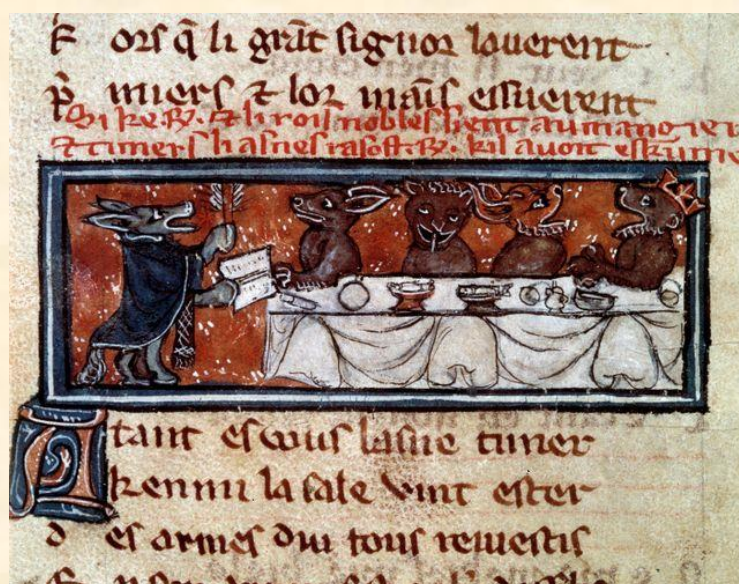 k ors q̃ li grãt signor lauerent
p̃ miers ⁊ lor maĩs essuerent
Si ke .R. ⁊ li rois nobles sient au mangier
⁊ timers li asnes rasost .R. kil auoit eskumenie
A tant es uous lasne timer
k enmi la sale vint ester
d es armes diu tous reuestis